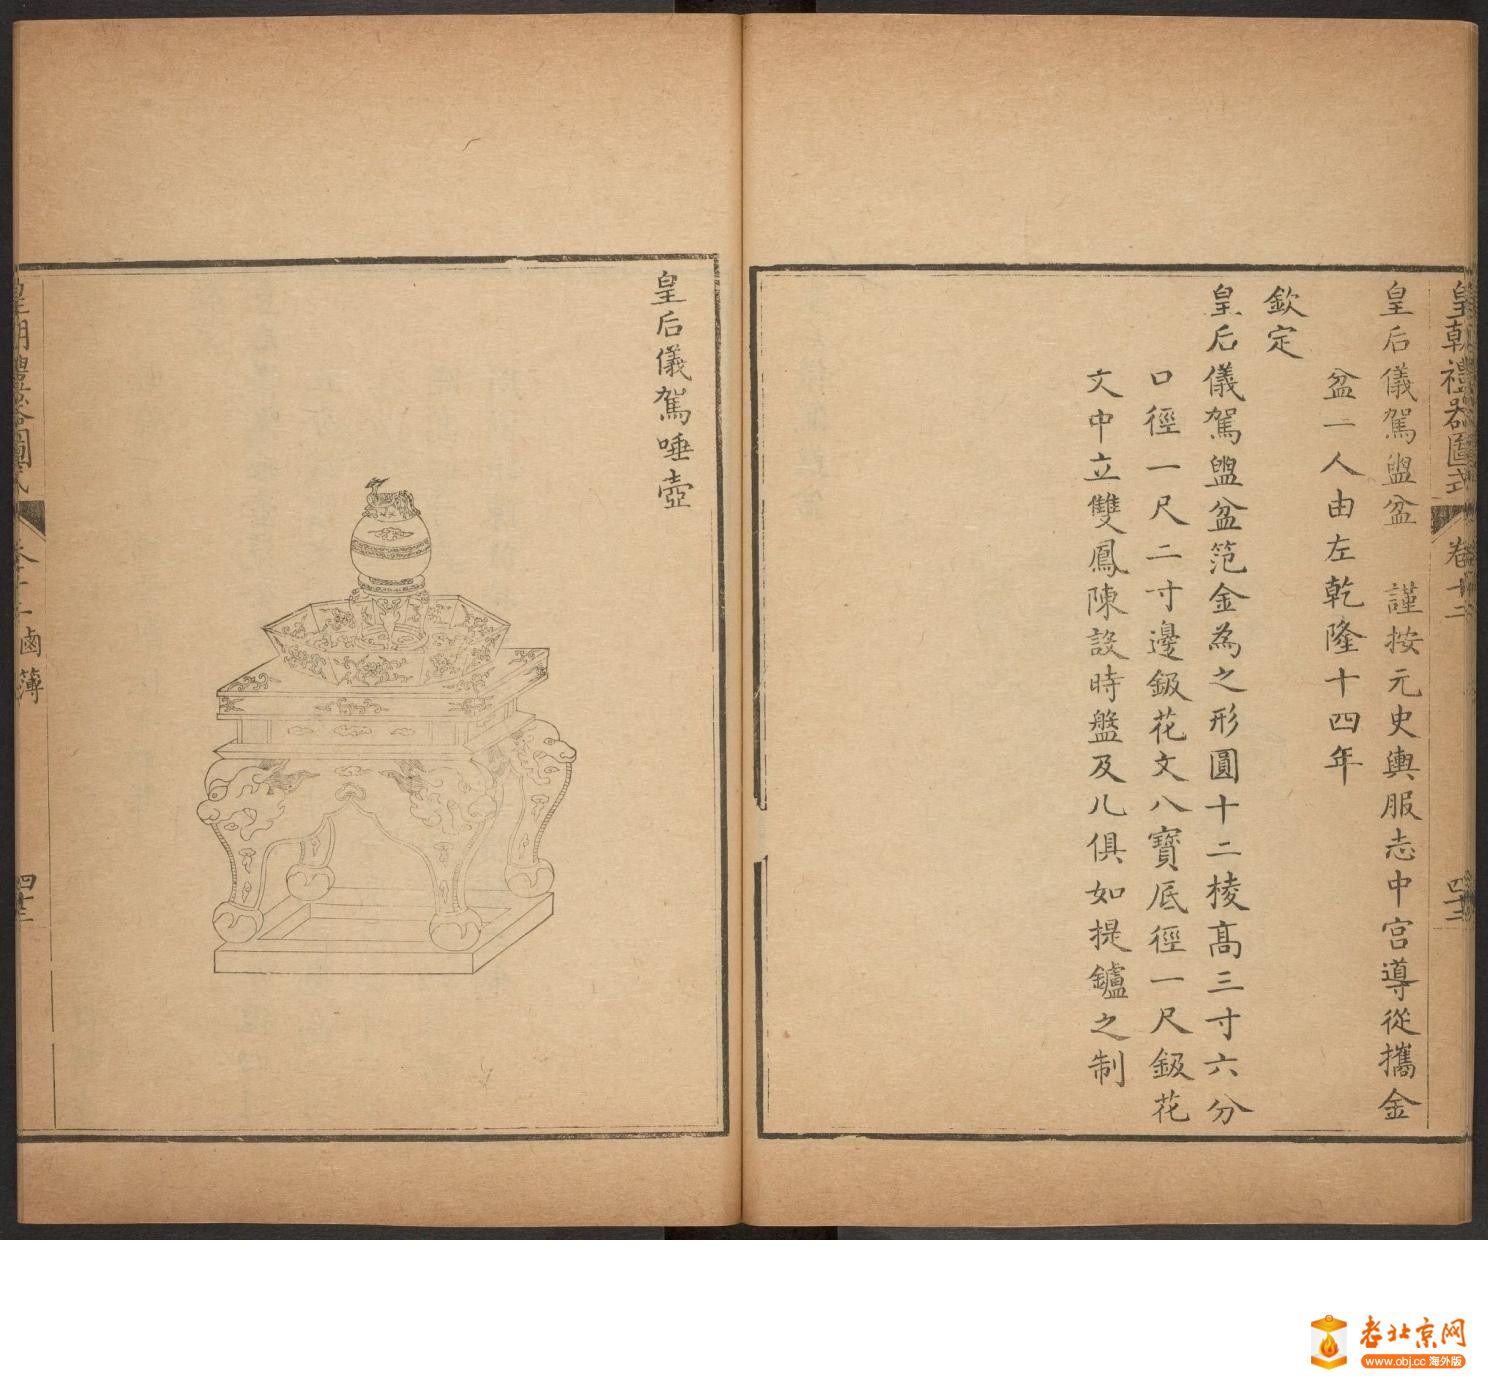 皇朝禮器圖式 卷十二 四十二
皇后儀駕盥盆 謹按元史輿服志中宮導從攜金
盆一人由左乾隆十四年
欽定
皇后儀駕盥盆范金為之形圓十二棱高三寸六分
口徑一尺二寸邊鈒花文八寶底徑一尺鈒花
文中立雙鳳陳設時盤及几俱如提鑪之制
皇后儀駕唾壺
鹵簿
老北京网
www.obj.cc 海外版